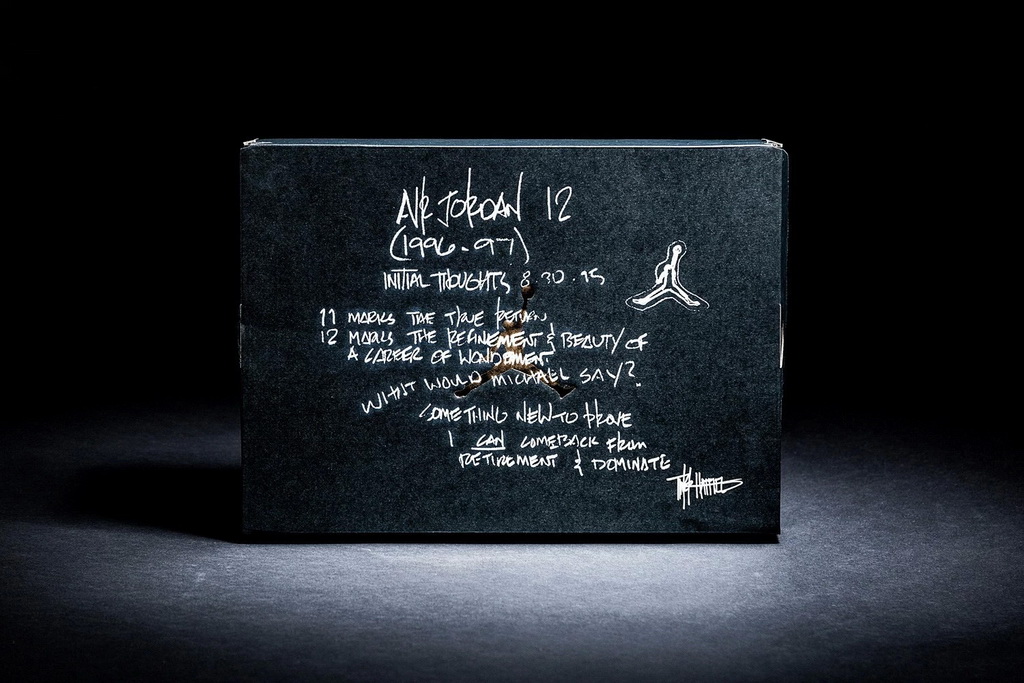 AIR JORDAN 12
(1996-97)
INITIAL THOUGHTS 8.30.95
11 MARKS THE TRUE RETURN
12 MARKS THE REFINEMENT & BEAUTY OF
A CAREER OF WONDERMENT
WHAT WOULD MICHAEL SAY?
SOMETHING NEW TO PROVE
I CAN COMEBACK FROM
RETIREMENT & DOMINATE